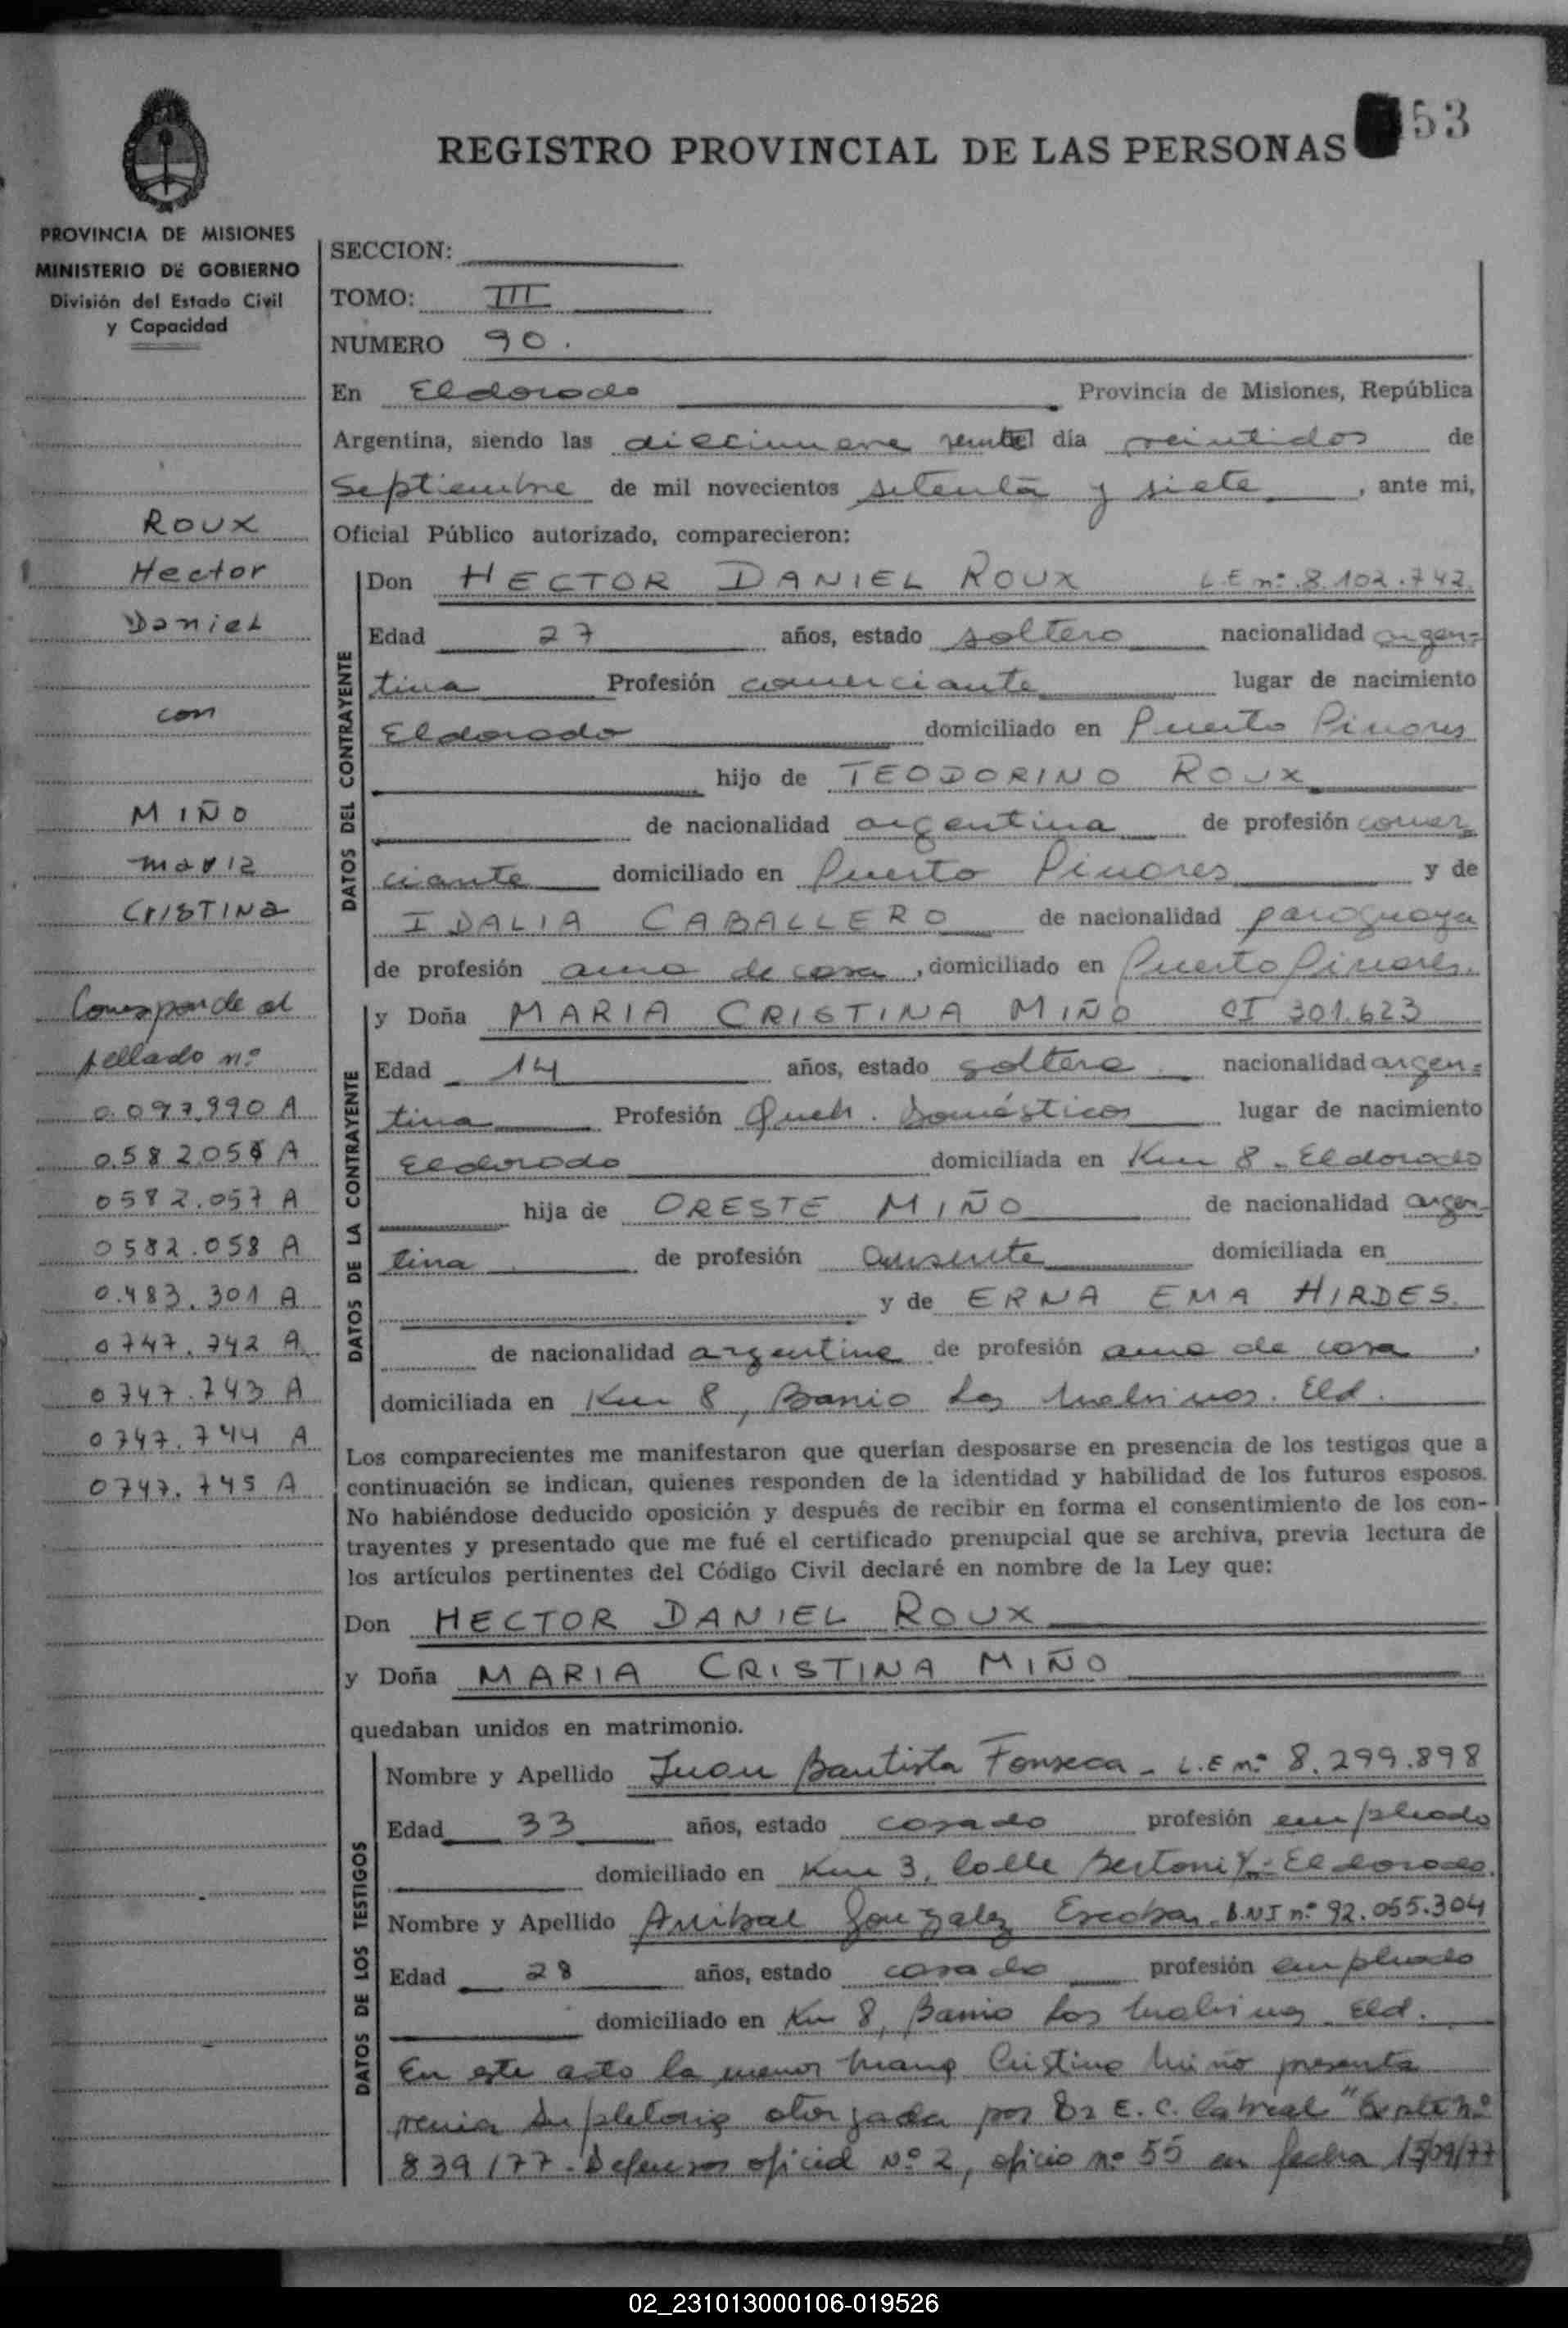 53
REGISTRO PROVINCIAL DE LAS PERSONAS
PROVINCIA DE MISIONES
MINISTERIO DE GOBIERNO
División del Estado Civil
y Capacidad
ROUX
Hector
Daniel
con
MIÑO
Maria
CRISTINA
Corresponde al
sellado nº
0.097.990 A
0.582.056 A
0582.057 A
0582.058 A
0.483.301 A
0747.742 A
0747.743 A
0747.744 A
0747.745 A
SECCION:
TOMO: III
NUMERO 90.
En Eldorado Provincia de Misiones, República
Argentina, siendo las diecinueve del día veintidos de
Septiembre de mil novecientos setenta y siete, ante mi,
Oficial Público autorizado, comparecieron:
DATOS DEL CONTRAYENTE
Don HECTOR DANIEL ROUX L.E nº 8.102.742
Edad 27 años, estado soltero nacionalidad argen=
tina Profesión comerciante lugar de nacimiento
Eldorado domiciliado en Puerto Pinares
hijo de TEODORINO ROUX
de nacionalidad argentina de profesión comer=
ciante domiciliado en Puerto Pinares y de
IDALIA CABALLERO de nacionalidad paraguaya
de profesión ama de casa, domiciliado en Puerto Pinares.
DATOS DE LA CONTRAYENTE
y Doña MARIA CRISTINA MIÑO CI 301.623
Edad 14 años, estado soltera nacionalidad argen=
tina Profesión Queh. Domésticos lugar de nacimiento
Eldorado domiciliada en Km 8 - Eldorado
hija de ORESTE MIÑO de nacionalidad argen-
tina de profesión ausente domiciliada en
y de ERNA EMA HIRDES.
de nacionalidad argentina de profesión ama de casa,
domiciliada en Km 8, Barrio Las Malvinas. Eld.
Los comparecientes me manifestaron que querían desposarse en presencia de los testigos que a
continuación se indican, quienes responden de la identidad y habilidad de los futuros esposos.
No habiéndose deducido oposición y después de recibir en forma el consentimiento de los con-
trayentes y presentado que me fué el certificado prenupcial que se archiva, previa lectura de
los artículos pertinentes del Código Civil declaré en nombre de la Ley que:
Don HECTOR DANIEL ROUX
y Doña MARIA CRISTINA MIÑO
quedaban unidos en matrimonio.
DATOS DE LOS TESTIGOS
Nombre y Apellido Juan Bautista Fonseca - L.E nº 8.299.898
Edad 33 años, estado casado profesión empleado
domiciliado en Km 3, Calle Bertoni - Eldorado.
Nombre y Apellido Anibal Gonzalez Escobar D.N.I nº 92.055.304
Edad 28 años, estado casado profesión empleado
domiciliado en Km 8, Barrio Las Malvinas Eld.
En este acto la menor Maria Cristina Miño presenta
venia supletoria otorgada por Dr E. C. Cabral "Expte nº
839/77 - Defensor oficial Nº 2, oficio nº 55 en fecha 15/09/77
02_231013000106-019526